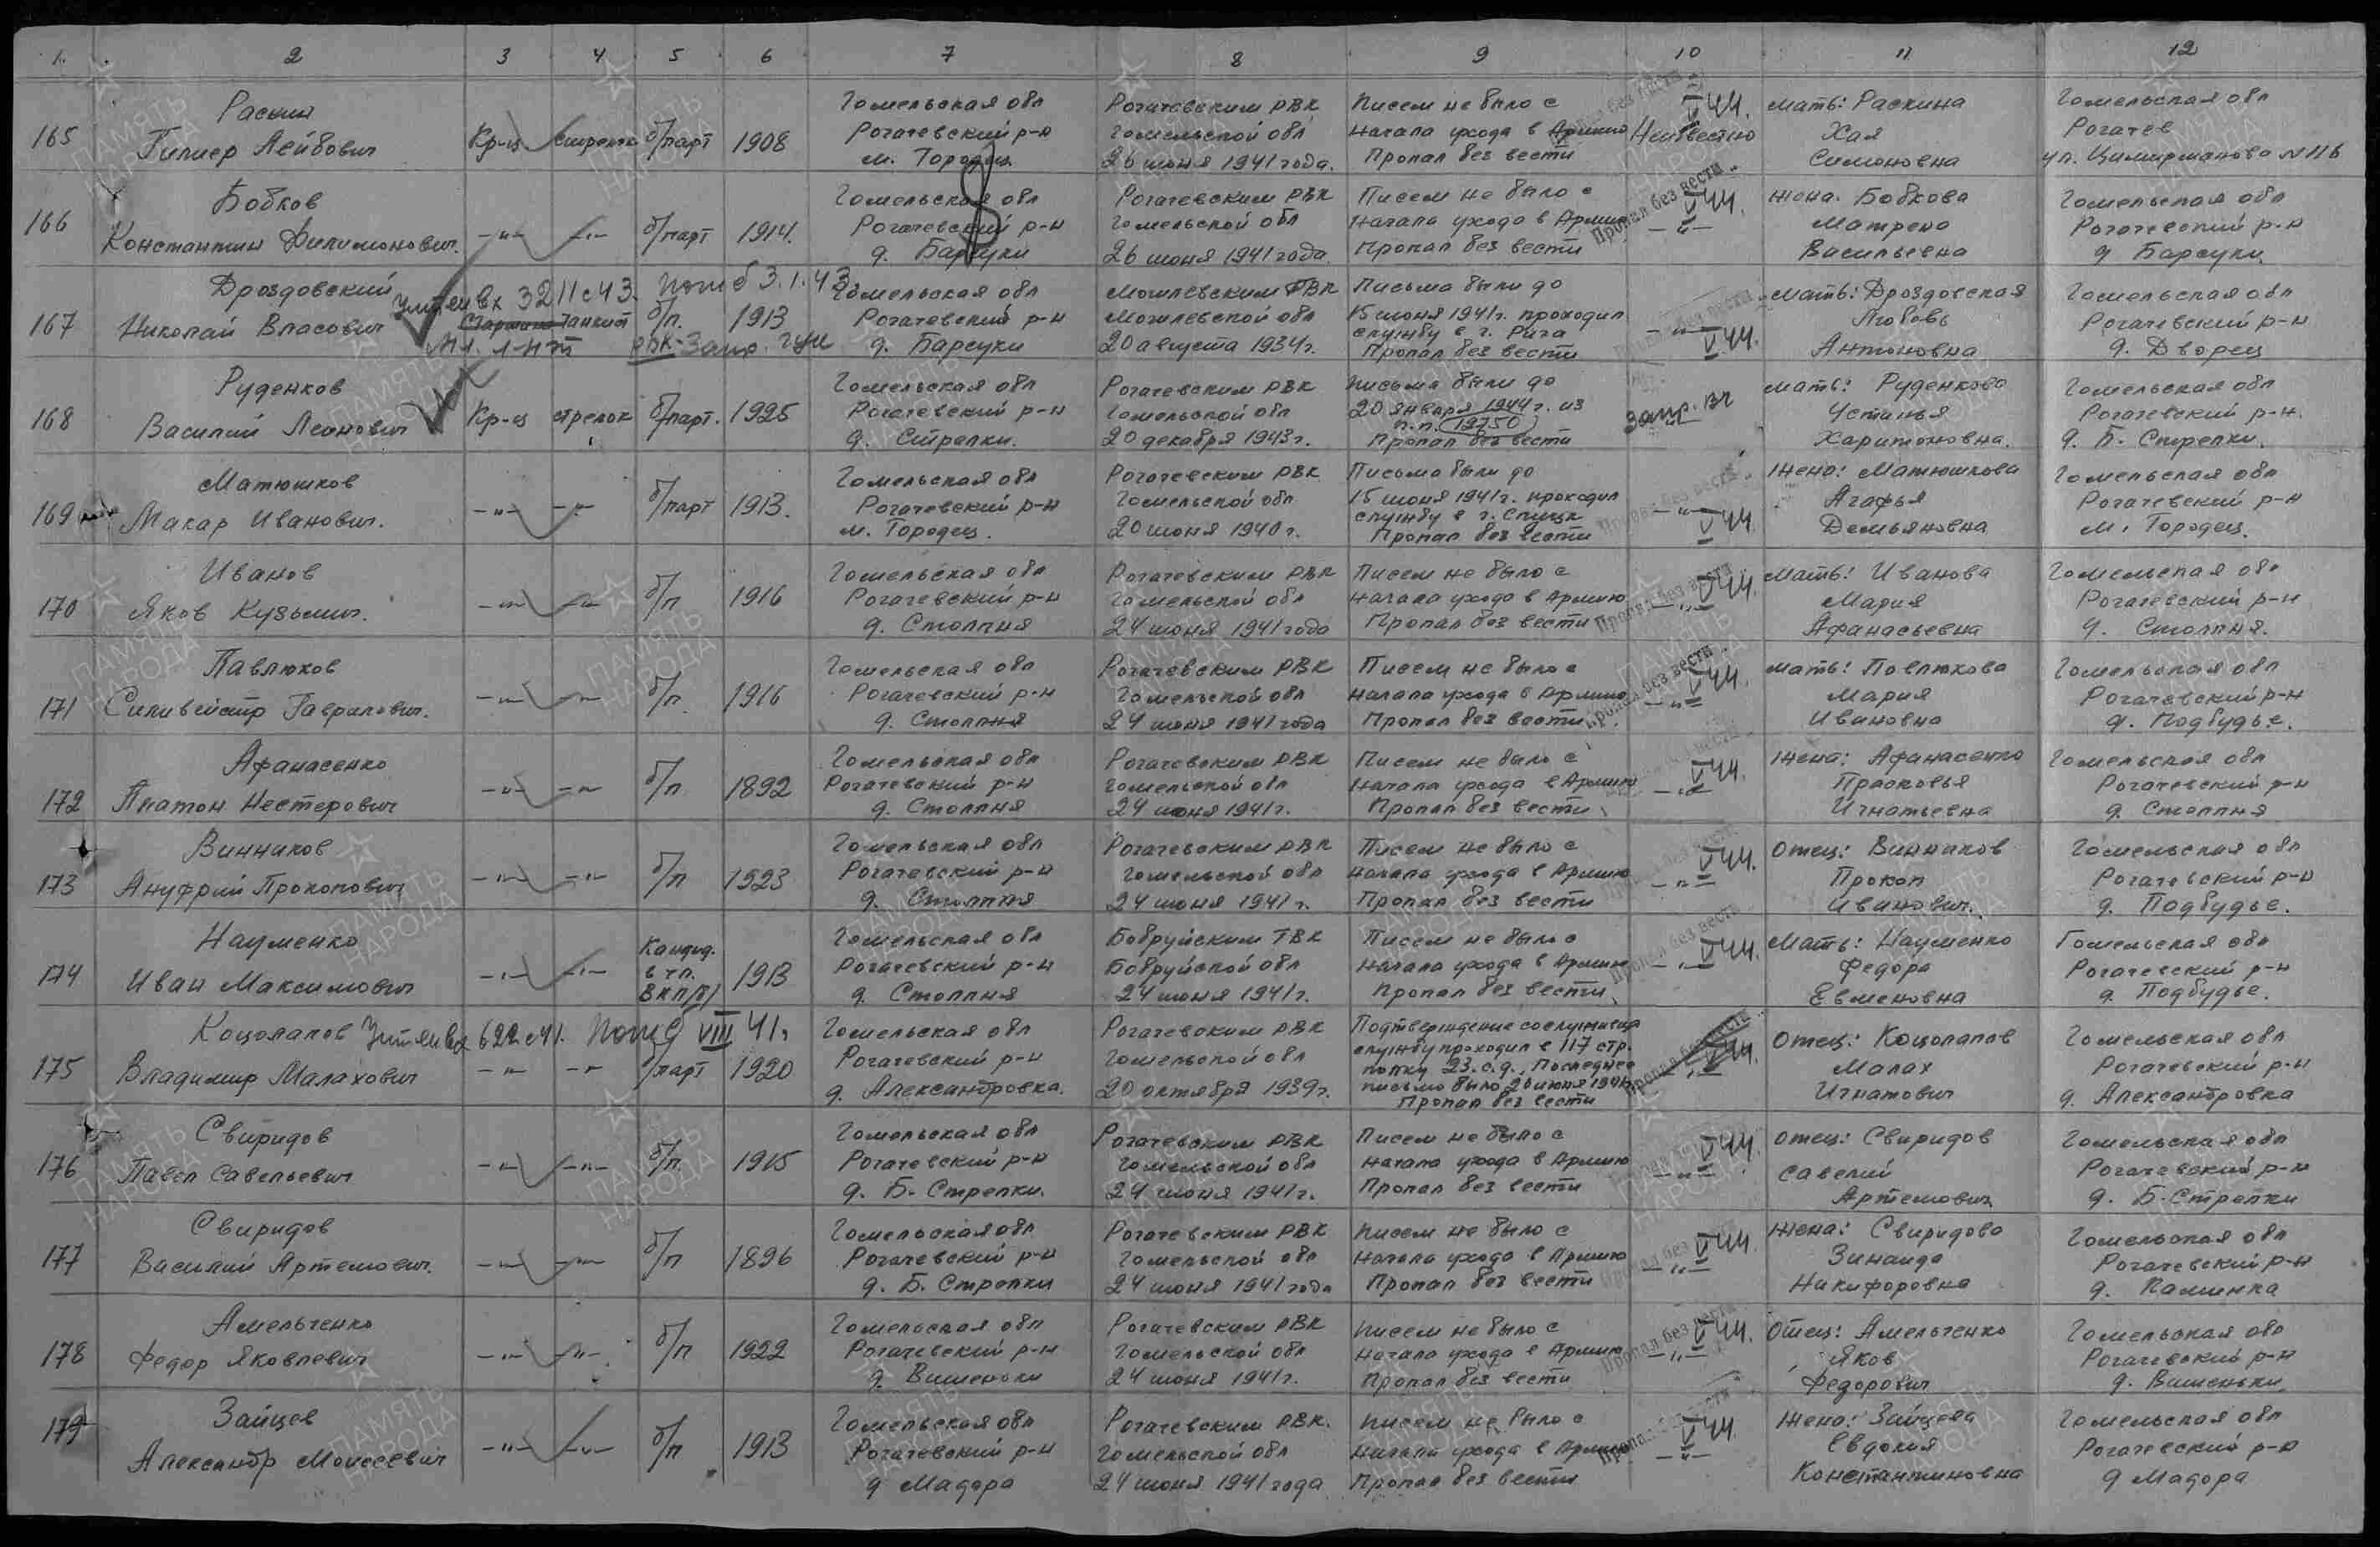 1. 2 3 4 5 6 7 8 9 10 11 12
165 Раскин Гилмер Лейбович Кр-ц стрелок б/парт 1908
Гомельская обл
Рогачевский р-н
м. Городец
Рогачевским РВК
Гомельской обл
26 июня 1941 года.
Писем не было с
начала ухода в Армию
Пропал без вести
V 44.
Неизвестно
мать: Раскина
Хая
Симоновна
Гомельская обл
Рогачев
ул. Циммерманова № 116
166 Бобков
Константин Филимонович
-"- -"- б/парт 1914.
Гомельская обл
Рогачевский р-н
д. Барсуки
Рогачевским РВК
Гомельской обл
26 июня 1941 года.
Писем не было с
начала ухода в Армию
Пропал без вести
Пропал без вести
V 44.
-"-
жена. Бобкова
Матрена
Васильевна
Гомельская обл
Рогачевский р-н
д Барсуки
167 Дроздовский
Николай Власович
Учтен вх 3211с43. погиб 3.1.43.
Старшина Танкист б/п. 1913
Мл. л-нт РВК-Запр. ГУК
Гомельская обл
Рогачевский р-н
д. Барсуки
Могилевским ГВК
Могилевской обл
20 августа 1934г.
Письма были до
15 июня 1941г. проходил
службу в г. Рига
Пропал без вести
-"-
V 44.
мать: Дроздовская
Любовь
Антоновна
Гомельская обл
Рогачевский р-н
д. Дворец
168 Руденков
Василий Леонович
Кр-ц стрелок б/парт. 1925
Гомельская обл
Рогачевский р-н
д. Стрелки.
Рогачевским РВК
Гомельской обл
20 декабря 1943г.
письма были до
20 января 1944г. из
п.п. 19750
Пропал без вести
запр. вч
мать: Руденкова
Устинья
Харитоновна.
Гомельская обл
Рогачевский р-н.
д. Б. Стрелки.
169 Матюшков
Макар Иванович.
-"- -"- б/парт 1913.
Гомельская обл
Рогачевский р-н
м. Городец.
Рогачевским РВК
Гомельской обл
20 июня 1940г.
Письма были до
15 июня 1941г. проходил
службу в г. Слуцк
Пропал без вести
Пропал без вести
-"-
V 44.
жена: Матюшкова
Агафья
Демьяновна
Гомельская обл
Рогачевский р-н
м. Городец.
170 Иванов
Яков Кузьмич.
-"- -"- б/п 1916
Гомельская обл
Рогачевский р-н
д. Столпня
Рогачевским РВК
Гомельской обл
24 июня 1941 года
Писем не было с
начала ухода в Армию
Пропал без вести
Пропал без вести
V 44.
-"-
мать: Иванова
Мария
Афанасьевна
Гомельская обл
Рогачевский р-н
д. Столпня.
171 Павлюков
Силивейстр Гаврилович.
-"- -"- б/п. 1916
Гомельская обл
Рогачевский р-н
д. Столпня
Рогачевским РВК
Гомельской обл
24 июня 1941 года
Писем не было с
начала ухода в Армию
Пропал без вести
Пропал без вести
V 44.
-"-
мать: Павлюкова
Мария
Ивановна
Гомельская обл
Рогачевский р-н
д. Подбудье.
172 Афанасенко
Платон Нестерович
-"- -"- б/п 1892
Гомельская обл
Рогачевский р-н
д. Столпня
Рогачевским РВК
Гомельской обл
24 июня 1941г.
Писем не было с
начала ухода в Армию
Пропал без вести
V 44.
-"-
жена: Афанасенко
Прасковья
Игнатьевна
Гомельская обл
Рогачевский р-н
д. Столпня
173 Винников
Ануфрий Прокопович
-"- -"- б/п 1923
Гомельская обл
Рогачевский р-н
д. Столпня
Рогачевским РВК
Гомельской обл
24 июня 1941г.
Писем не было с
начала ухода в Армию
Пропал без вести
V 44.
-"-
отец: Винников
Прокоп
Иванович.
Гомельская обл
Рогачевский р-н
д. Подбудье.
174 Науменко
Иван Максимович
-"- -"- Кандид. в чл. ВКП/б/ 1913
Гомельская обл
Рогачевский р-н
д. Столпня
Бобруйским ГВК
Бобруйской обл
24 июня 1941г.
Писем не было с
начала ухода в Армию
Пропал без вести
Пропал без вести
V 44.
-"-
Мать: Науменко
Федора
Евменовна
Гомельская обл
Рогачевский р-н
д. Подбудье.
175 Коцолапов
Владимир Малахович
Учтен вх 622с41. Погиб VIII 41г
-"- -"- б/парт 1920
Гомельская обл
Рогачевский р-н
д. Александровка.
Рогачевским РВК
Гомельской обл
20 октября 1939г.
Подтверждение сослуживца
службу проходил в 117 стр.
полку 23. с.д. Последнее
письмо было 20 июня 1941г
Пропал без вести
Пропал без вести
V 44.
-"-
отец: Коцолапов
Малах
Игнатович
Гомельская обл
Рогачевский р-н
д. Александровка
176 Свиридов
Павел Савельевич
-"- -"- б/п. 1915
Гомельская обл
Рогачевский р-н
д. Б. Стрелки.
Рогачевским РВК
Гомельской обл
24 июня 1941г.
Писем не было с
начала ухода в Армию
Пропал без вести
V 44.
-"-
отец: Свиридов
Савелий
Артемович
Гомельская обл
Рогачевский р-н
д. Б. Стрелки
177 Свиридов
Василий Артемович.
-"- -"- б/п 1896
Гомельская обл
Рогачевский р-н
д. Б. Стрелки
Рогачевским РВК
Гомельской обл
24 июня 1941 года
Писем не было с
начала ухода в Армию
Пропал без вести
V 44.
-"-
жена: Свиридова
Зинаида
Никифоровна
Гомельская обл
Рогачевский р-н
д. Каминка
178 Амельченко
Федор Яковлевич
-"- -"- б/п 1922
Гомельская обл
Рогачевский р-н
д. Вишеньки
Рогачевским РВК
Гомельской обл
24 июня 1941г.
Писем не было с
начала ухода в Армию
Пропал без вести
Пропал без вести
V 44.
-"-
Отец: Амельченко
Яков
Федорович
Гомельская обл
Рогачевский р-н
д. Вишеньки
179 Зайцев
Александр Моисеевич
-"- -"- б/п 1913
Гомельская обл
Рогачевский р-н
д Мадора
Рогачевским РВК.
Гомельской обл
24 июня 1941 года
Писем не было с
начала ухода в Армию
Пропал без вести
V 44
-"-
жена: Зайцева
Евдокия
Константиновна
Гомельская обл
Рогачевский р-н
д Мадора
ПАМЯТЬ НАРОДА